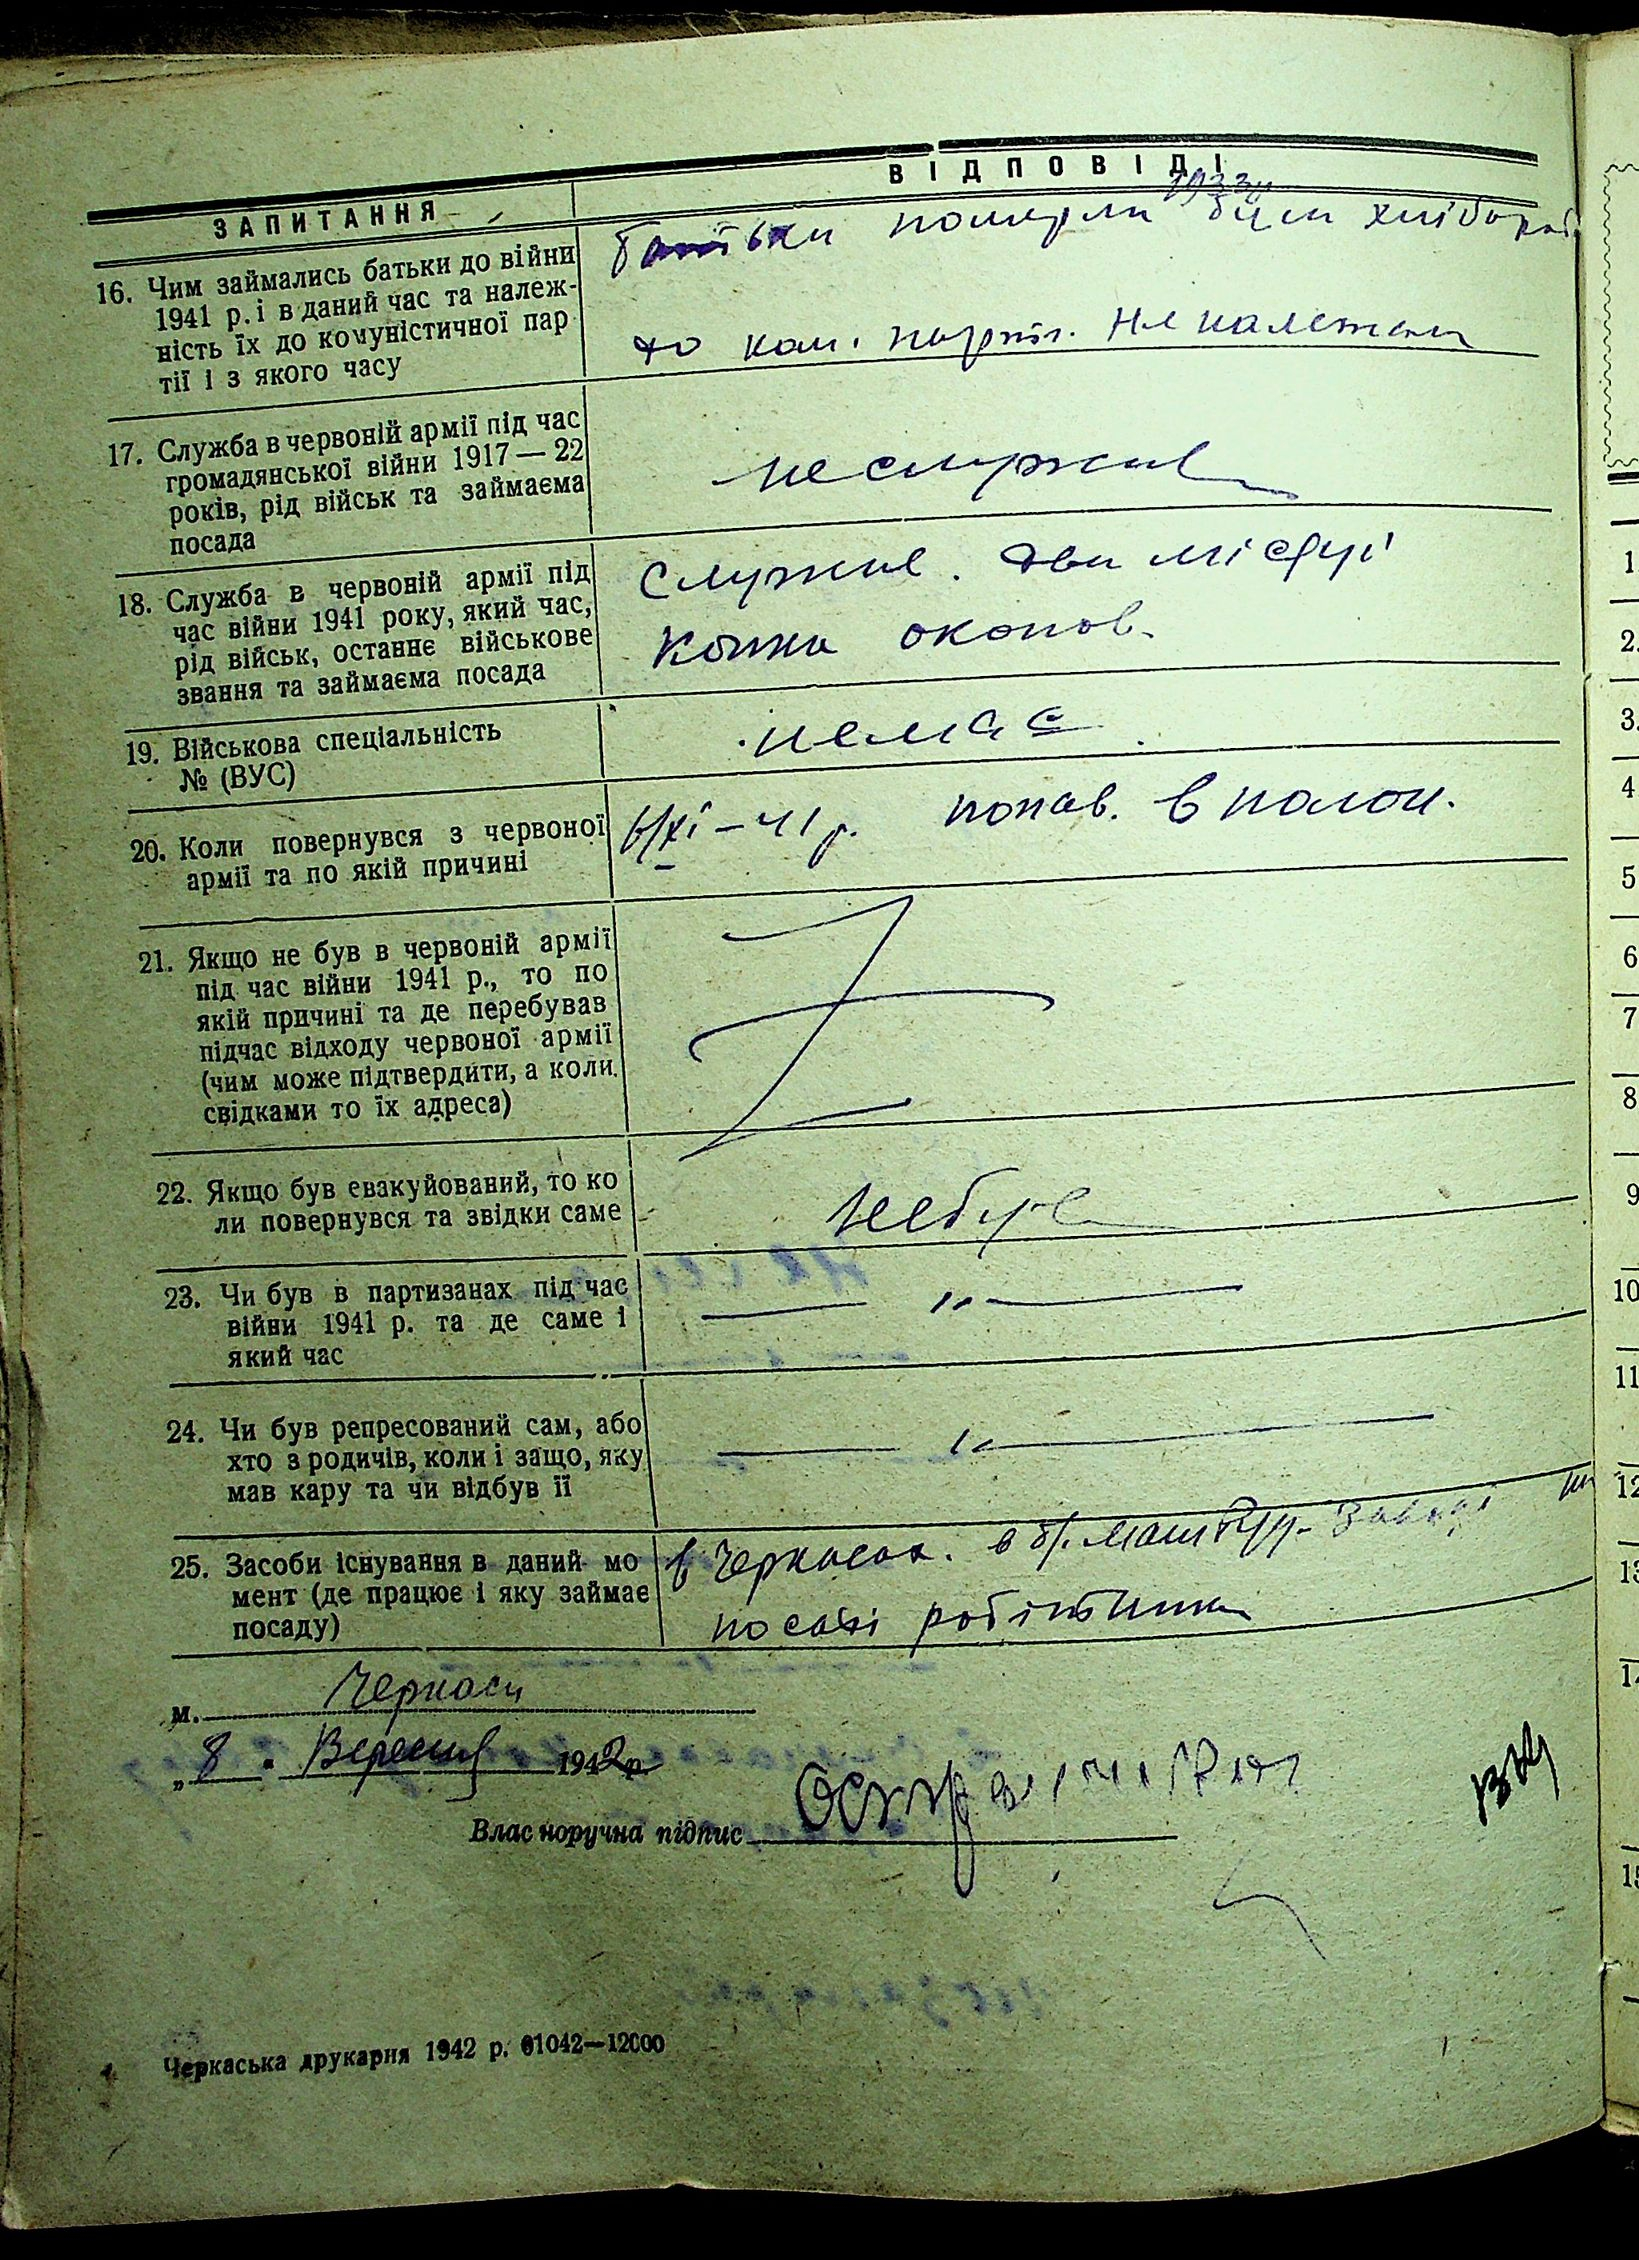 ВІДПОВІДІ
ЗАПИТАННЯ
1933
16. Чим займались батьки до війни
1941 р. і в даний час та належ-
ність їх до комуністичної пар
тії і з якого часу
батьки померли були хлібороб.
до ком. партії. не належали
17. Служба в червоній армії під час
громадянської війни 1917—22
років, рід військ та займаєма
посада
не служив
18. Служба в червоній армії під
час війни 1941 року, який час,
рід військ, останнє військове
звання та займаєма посада
Служив. два місяці
копка окопов.
19. Військова спеціальність
№ (ВУС)
немає
20. Коли повернувся з червоної
армії та по якій причині
6/XI – 41 р. попав. в полон.
21. Якщо не був в червоній армії
під час війни 1941 р., то по
якій причині та де перебував
підчас відходу червоної армії
(чим може підтвердити, а коли
свідками то їх адреса)
22. Якщо був евакуйований, то ко
ли повернувся та звідки саме
не був
23. Чи був в партизанах під час
війни 1941 р. та де саме і
який час
— „ —
24. Чи був репресований сам, або
хто з родичів, коли і защо, яку
мав кару та чи відбув її
— „ —
25. Засоби існування в даний мо
мент (де працює і яку займає
посаду)
в Черкасах. в б/. машбуд. заводі на
посаді робітника
м. Черкаси
„ 8 " Вересня 1942 р.
Власноручна підпис
Черкаська друкарня 1942 р. 01042—12000
1
2.
3.
4
5
6
7
8
9
10
11
12
13
14
15